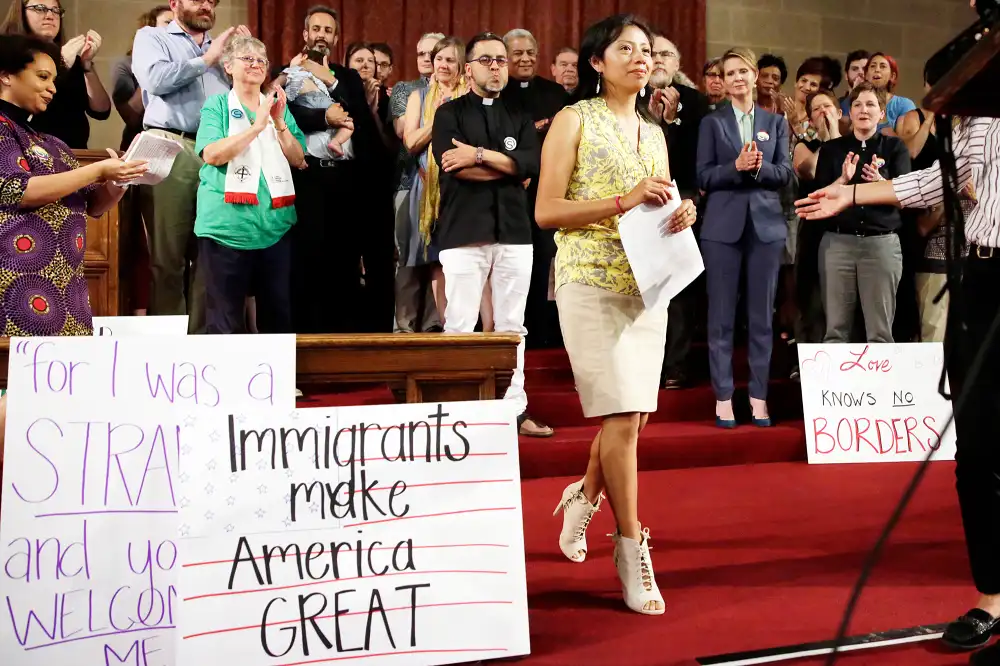 "for I was a
STRA
and yo
WELCO
ME
Immigrants
make
America
GREAT
Love
KNOWS NO
BORDERS